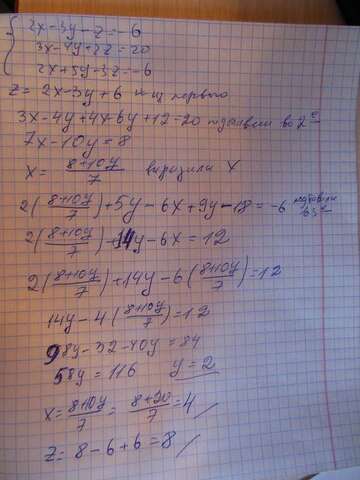 2x-3y-z=-6
3x-4y+2z=20
2x+5y-3z=-6
z= 2x-3y+6 из первого
3x-4y+4x-6y+12=20 подставим во 2ое
7x-10y=8
x= (8+10y)/7 выразила x
2((8+10y)/7)+5y-6x+9y-18=-6 подставим в 3е
2((8+10y)/7)+14y-6x=12
2((8+10y)/7)+14y-6((8+10y)/7)=12
14y-4((8+10y)/7)=12
98y-32-40y=84
58y=116 y=2
x=(8+10y)/7=(8+20)/7=4
z=8-6+6=8